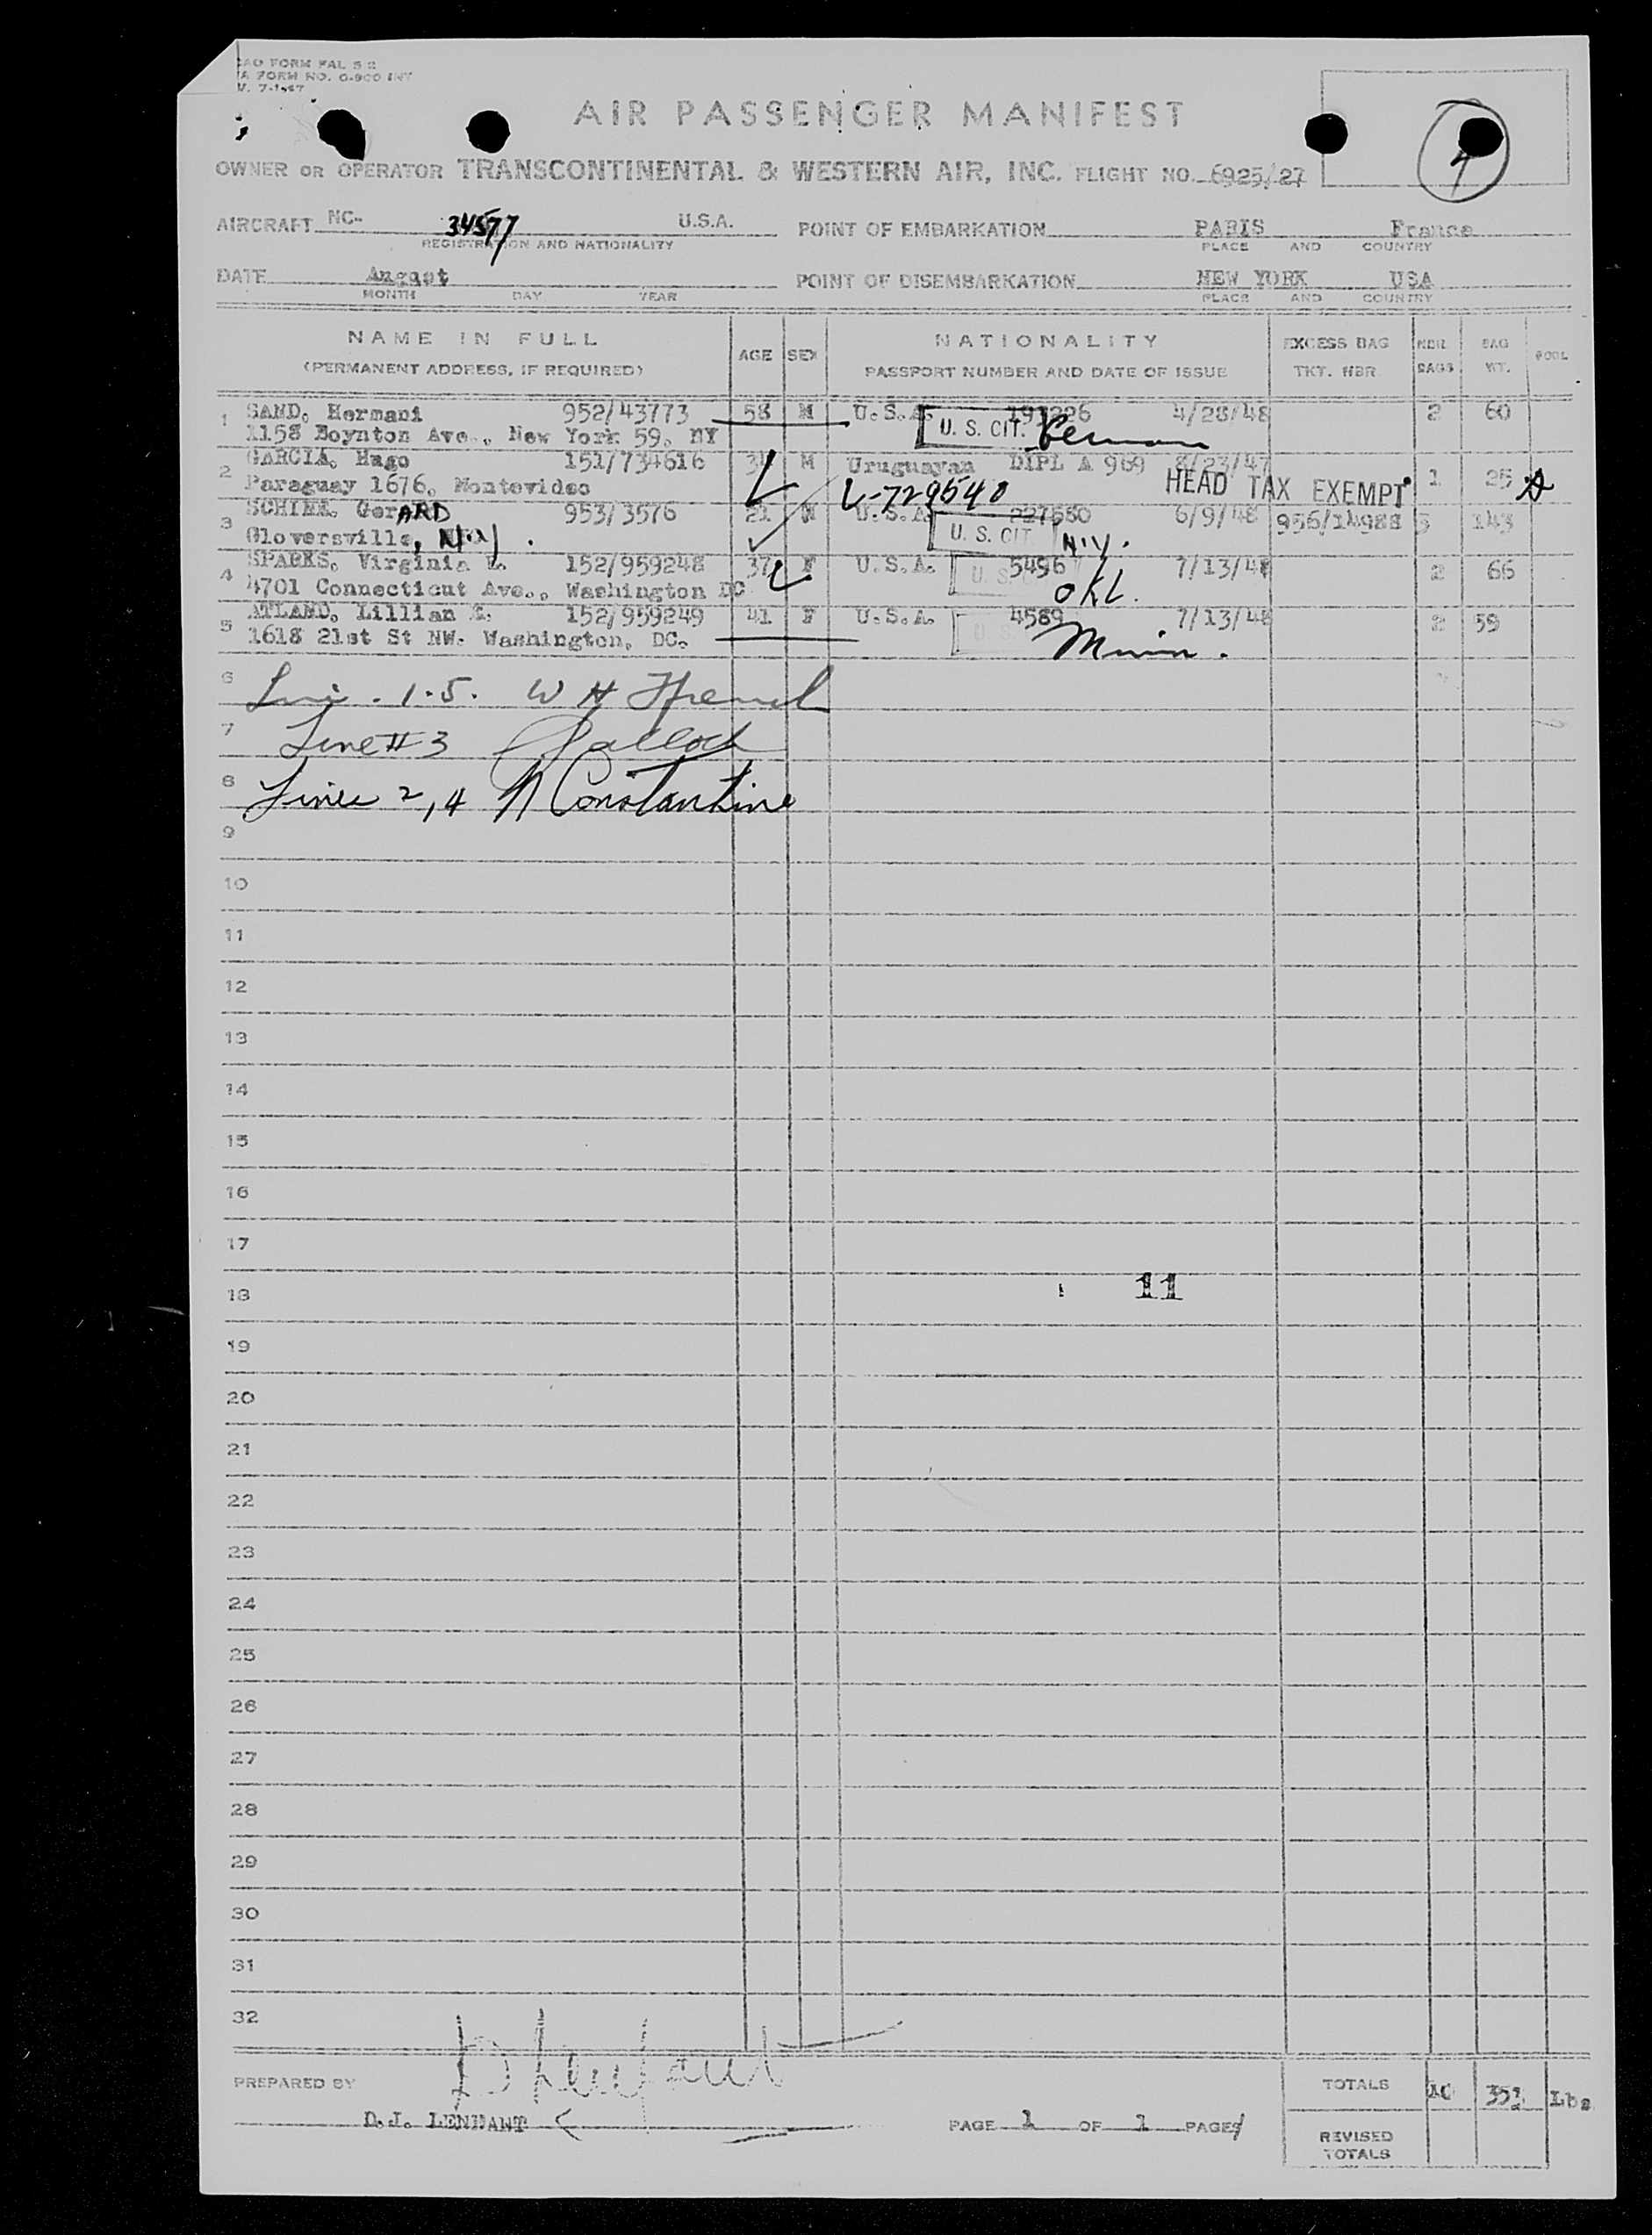 AIR PASSENGER MANIFEST
OWNER OR OPERATOR TRANSCONTINENTAL & WESTERN AIR, INC. FLIGHT NO. 6925/27
AIRCRAFT NC- 34577 U.S.A. POINT OF EMBARKATION PARIS France
REGISTRATION AND NATIONALITY PLACE AND COUNTRY
DATE August POINT OF DISEMBARKATION NEW YORK USA
MONTH DAY YEAR PLACE AND COUNTRY
NAME IN FULL AGE SEX NATIONALITY EXCESS BAG NBR BAG POOL
(PERMANENT ADDRESS, IF REQUIRED) PASSPORT NUMBER AND DATE OF ISSUE TKT. NBR BAGS WT.
1 SAND, Hermani 952/43773 58 M U.S.A. 4/28/48 2 60
1158 Boynton Ave., New York 59, NY U. S. CIT.
2 GARCIA, Hugo 151/734616 M Uruguayan DIPL A 969 8/23/47 1 25
Paraguay 1676, Montevideo L-729540 HEAD TAX EXEMPT
3 SCHINE, GerARD 953/3576 21 M U.S.A. 227550 6/9/48 956/14988 143
Gloversville, N.Y. U. S. CIT. N.Y.
4 SPARKS, Virginia L. 152/959248 37 F U.S.A. 5496 7/13/48 2 66
4701 Connecticut Ave., Washington DC OKL.
5 ATLAND, Lillian G. 152/959249 41 F U.S.A. 4589 7/13/48 2 59
1618 21st St NW. Washington, DC. Minn.
6 1.5. W H
7 Line #3
8 Lines 2,4 N Constantine
9
10
11
12
13
14
15
16
17
18 11
19
20
21
22
23
24
25
26
27
28
29
30
31
32
PREPARED BY TOTALS 10 353 Lbs
D.J. LENHANT PAGE 1 OF 1 PAGES REVISED
TOTALS